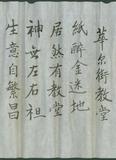 華尔街教堂
紙醉金迷地
居然有教堂
神無左右袒
生意自繁昌